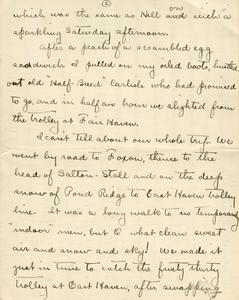 2
on
which was the same as Hell and such a
sparkling Saturday afternoon.
After a peach of a scrambled egg
sandwich I pulled on my oiled boots, hustled
out old "Half-Breed" Carlisle who had promised
to go, and in half an hour we alighted from
the trolley at Fair Haven.
I can't tell about our whole trip. We
went by road to Foxon, thence to the
head of Salton-Stall and on the deep
snow of Pond Ridge to East Haven trolley
line. It was a long walk to us temporary
"indoor" men, but O what clean sweet
air and snow and sky! We made it
just in time to catch the five thirty
trolley at East Haven, after swapping